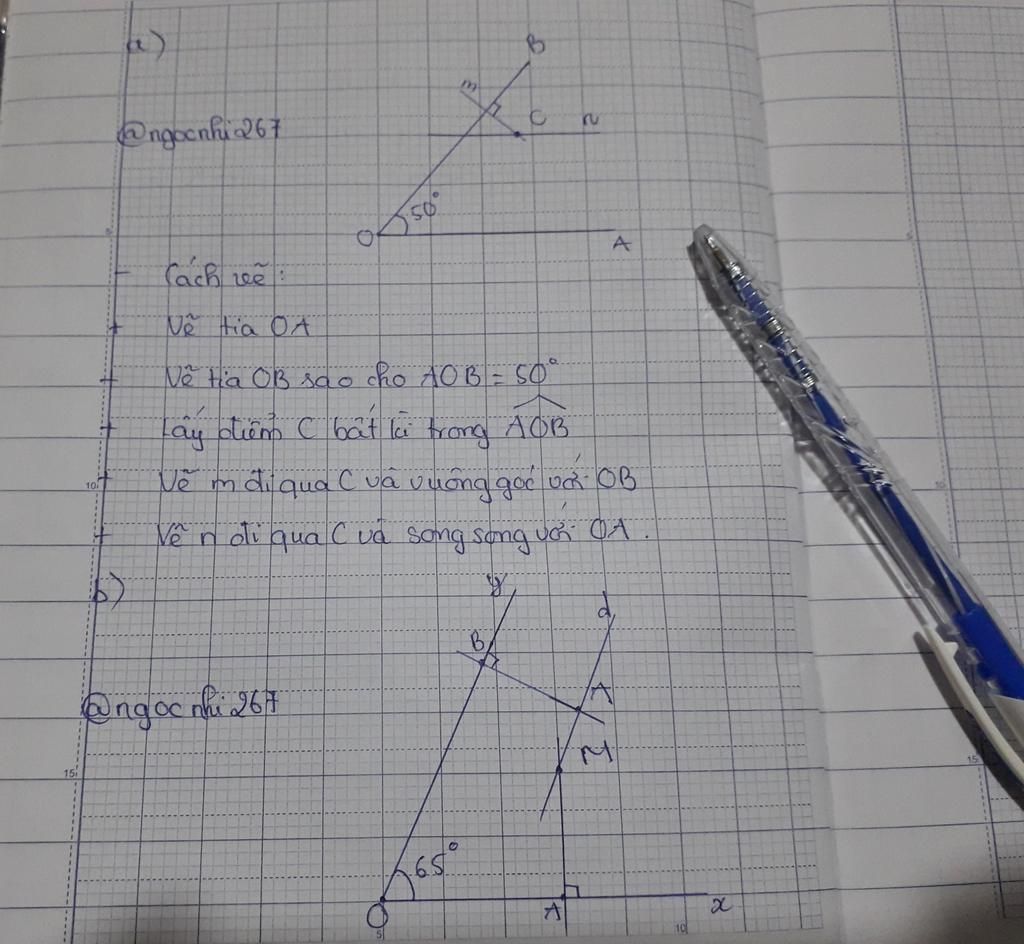 a)
B
m
C n
@ngocnhi267
50°
O A
- Cách vẽ:
+ Vẽ tia OA
+ Vẽ tia OB sao cho AOB = 50°
+ Lấy điểm C bất kì trong AOB
+ Vẽ m đi qua C và vuông góc với OB
+ Vẽ n đi qua C và song song với OA.
b)
y
d
B
A
@ngocnhi267
M
65°
O A x
10
15
5
10
15